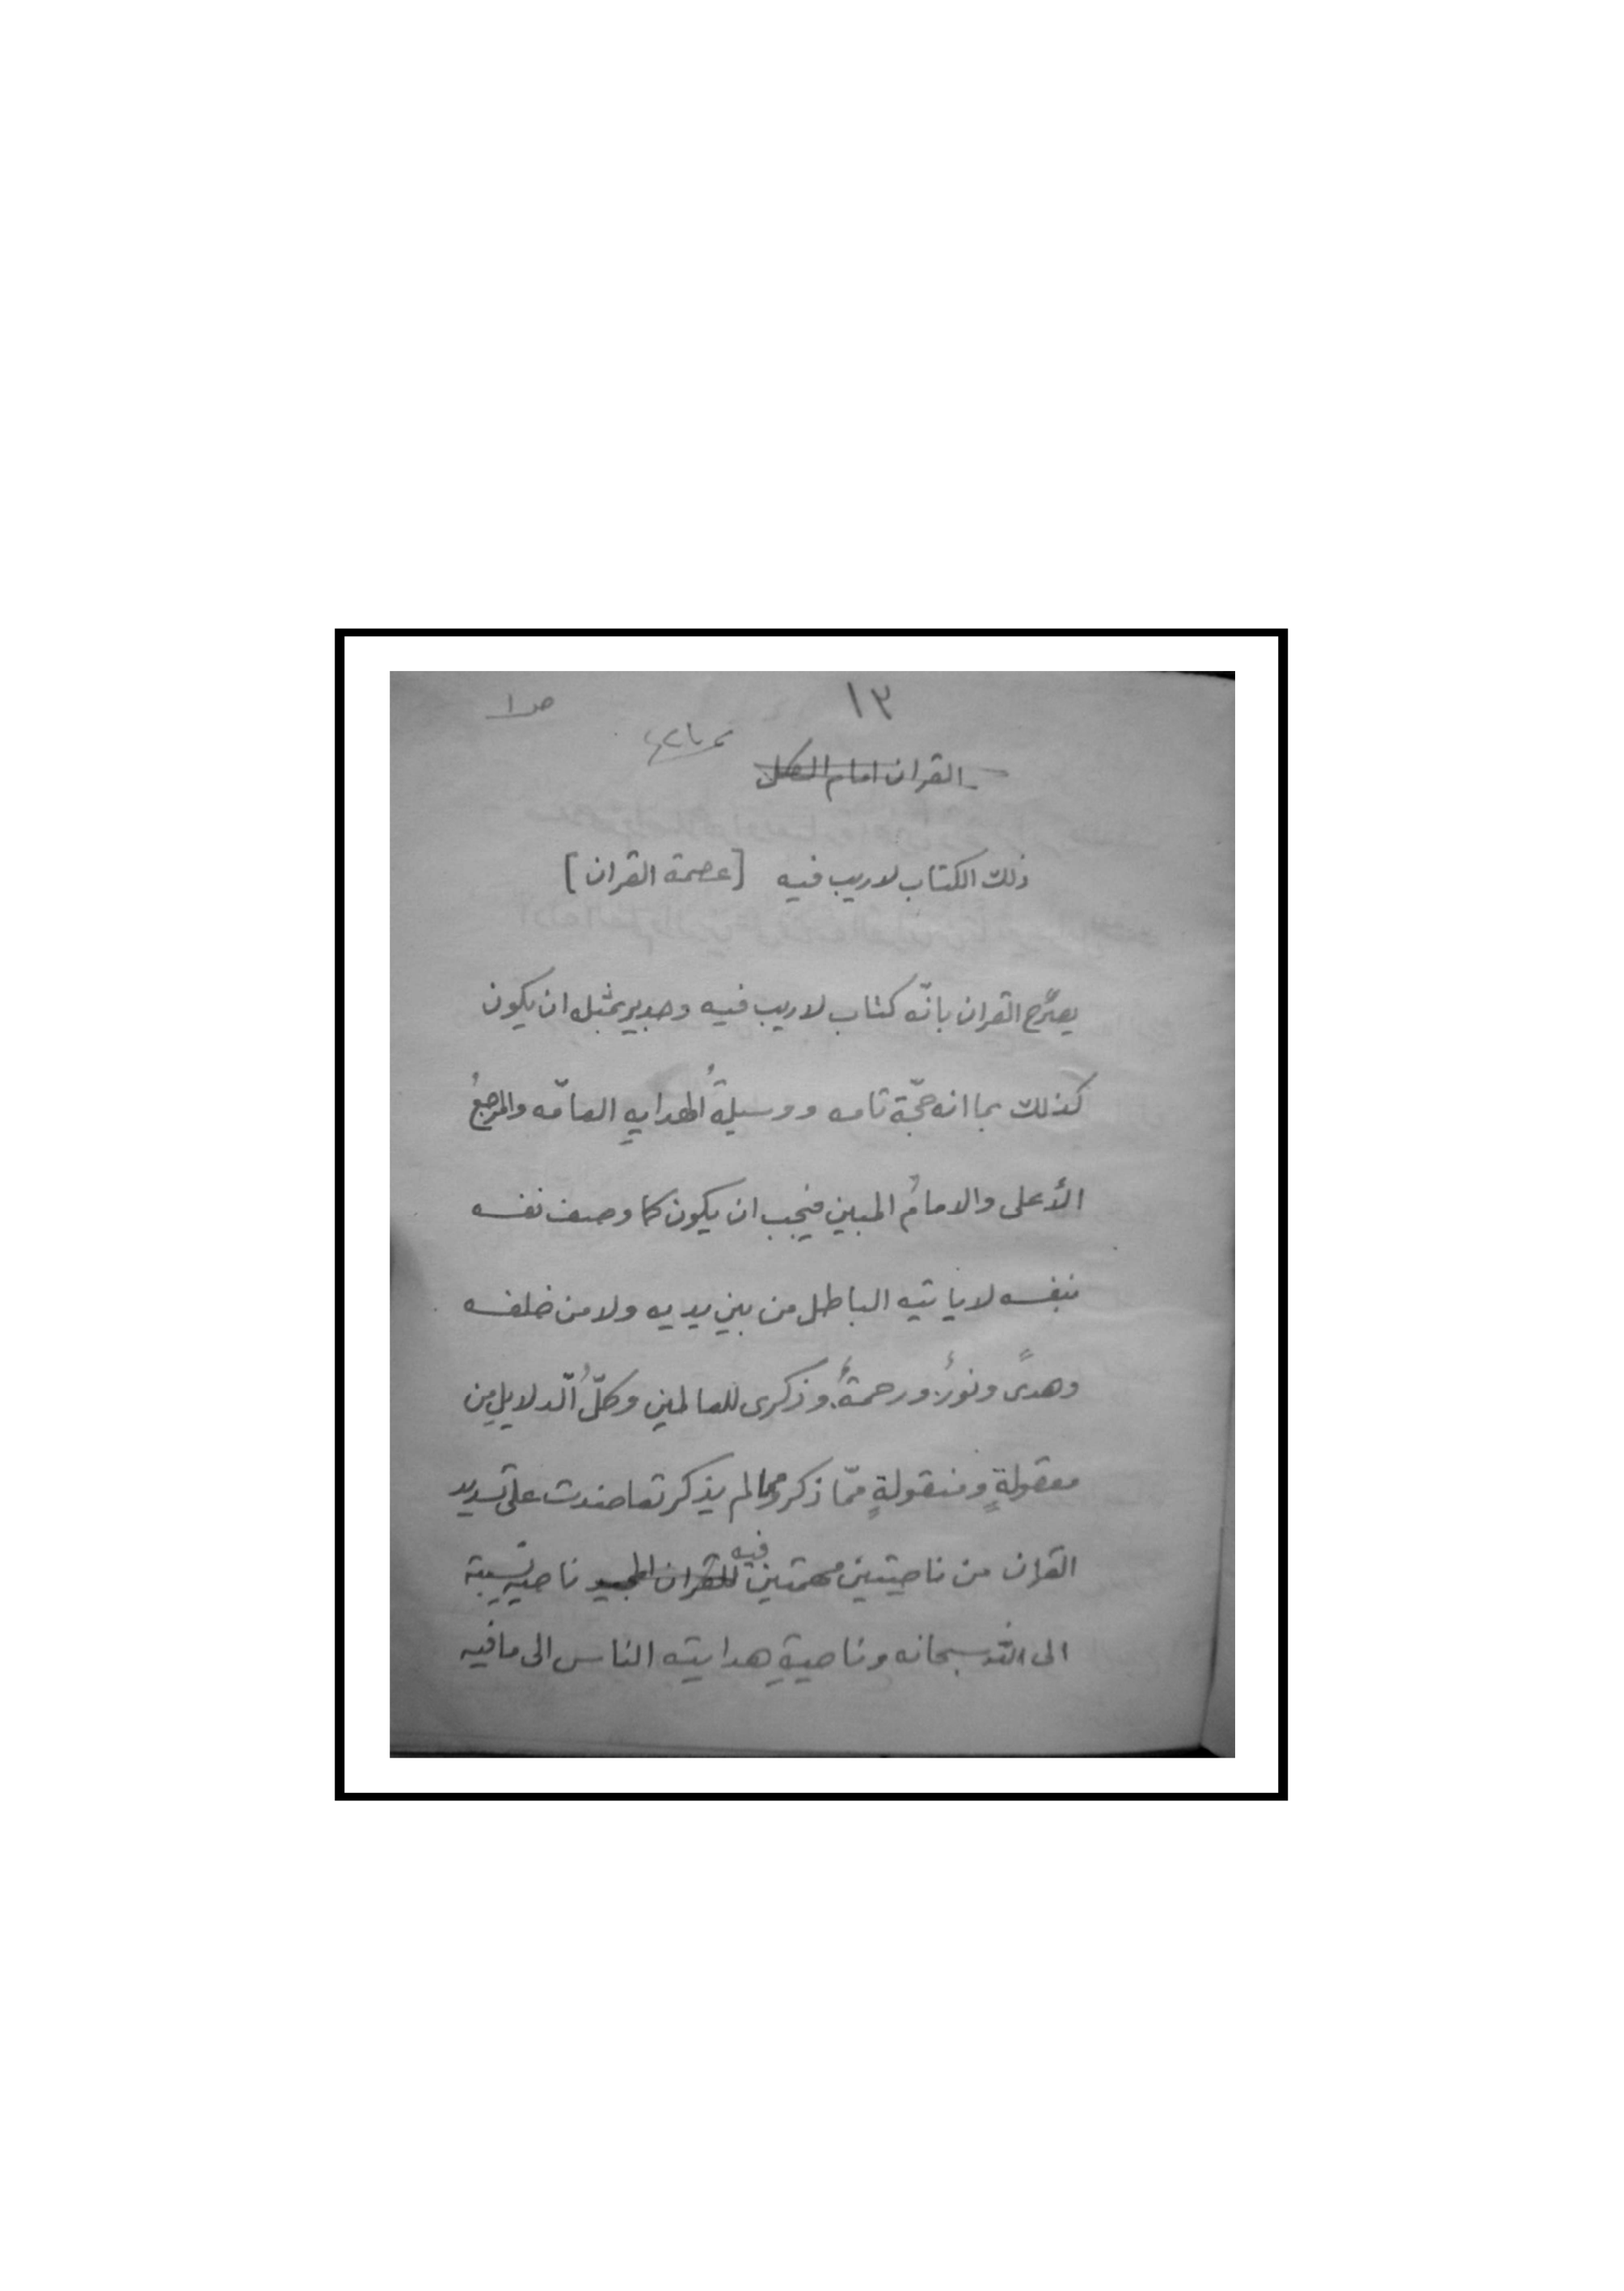 ١٣
ص١
القران امام الكل
ذلك الكتاب لاريب فيه [عصمة القران]
يصرّح القران بانّه كتاب لاريب فيه وجدير بمثله ان يكون
كذلك بما انه حجّة تامه ووسيلةُ الهدايهِ العامّه والمرجعُ
الأعلى والامامُ المبين فيجب ان يكون كما وصف نفسه
بنفسه لاياتيه الباطل من بين يديه ولا من خلفه
وهدىً ونورٌ ورحمةٌ وذكرى للعالمين وكلُّ الّدلايلِ مِن
معقولةٍ ومنقولةٍ ممّا ذكر ومما لم يذكر تعاضدت على تسديد
القران من ناحيتين مهمتين فيه للقران المجيد ناحيهِ نسبته
الى اللّه سبحانه وناحيةِ هدايته الناس الى مافيه